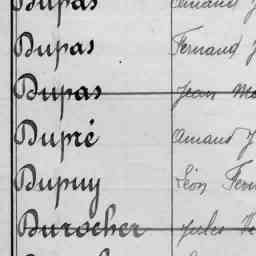 Dupas Amand J
Dupas Fernand J
Dupas Jean Ma
Dupré Amand J
Dupuy Léon Fern
Durocher Jules